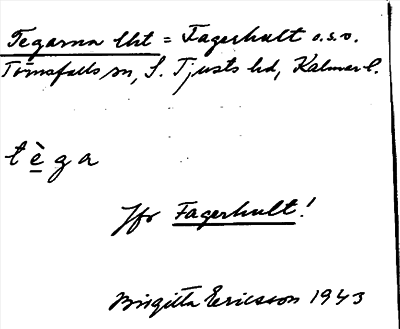 Tegarna lht = Fagerhult o.s.v.
Törnsfalls sn, S. Tjusts hd, Kalmar l.
tèga
Jfr Fagerhult!
Birgitta Ericsson 1943